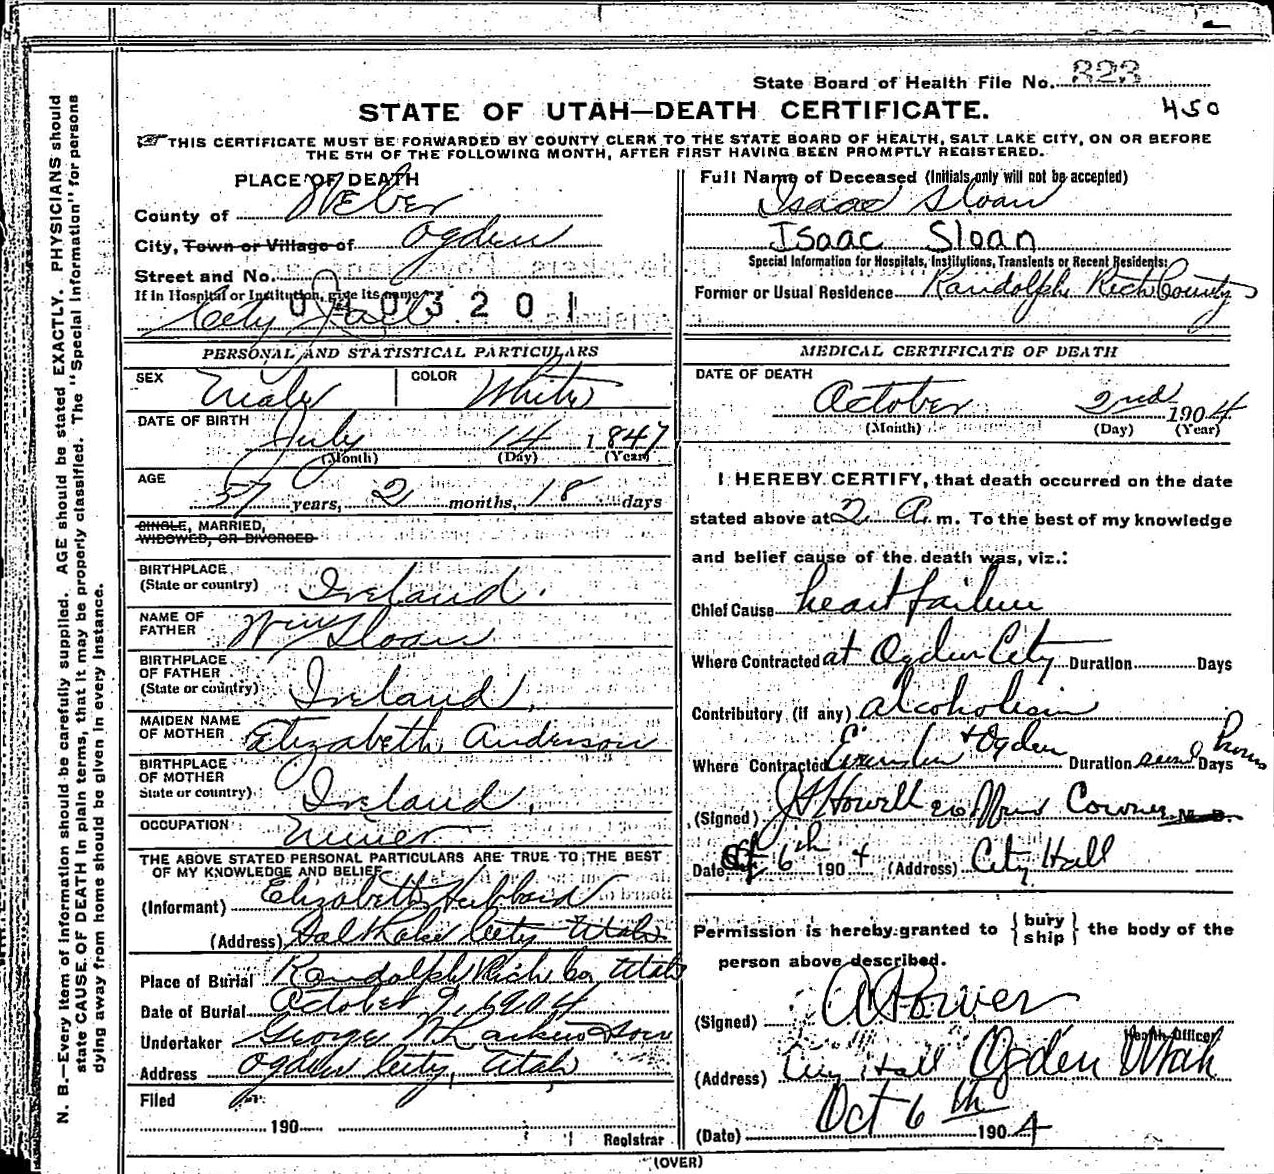 State Board of Health File No. 323
STATE OF UTAH—DEATH CERTIFICATE.
450
THIS CERTIFICATE MUST BE FORWARDED BY COUNTY CLERK TO THE STATE BOARD OF HEALTH, SALT LAKE CITY, ON OR BEFORE
THE 5TH OF THE FOLLOWING MONTH, AFTER FIRST HAVING BEEN PROMPTLY REGISTERED.
PLACE OF DEATH
County of Weber
City, Town or Village of Ogden
Street and No.
If in Hospital or Institution, give its name
City Jail
0403201
PERSONAL AND STATISTICAL PARTICULARS
SEX Male COLOR White
DATE OF BIRTH
July 14 1847
(Month) (Day) (Year)
AGE
57 years, 2 months, 18 days
SINGLE, MARRIED,
WIDOWED, OR DIVORCED
BIRTHPLACE
(State or country) Ireland.
NAME OF
FATHER Wm Sloan
BIRTHPLACE
OF FATHER
(State or country) Ireland,
MAIDEN NAME
OF MOTHER Elizabeth Anderson
BIRTHPLACE
OF MOTHER
State or country) Ireland,
OCCUPATION Miner
THE ABOVE STATED PERSONAL PARTICULARS ARE TRUE TO THE BEST
OF MY KNOWLEDGE AND BELIEF
(Informant) Elizabeth Hibbard
(Address) Salt Lake City Utah
Place of Burial Randolph Rich Co, Utah
Date of Burial October 9, 1904
Undertaker George W Larkin & Son
Address Ogden City, Utah
Filed
190
Registrar
Full Name of Deceased (Initials only will not be accepted)
Isaac Sloan
Isaac Sloan
Special Information for Hospitals, Institutions, Transients or Recent Residents:
Former or Usual Residence Randolph Rich County
MEDICAL CERTIFICATE OF DEATH
DATE OF DEATH
October 2nd 1904
(Month) (Day) (Year)
I HEREBY CERTIFY, that death occurred on the date
stated above at 2 A. m. To the best of my knowledge
and belief cause of the death was, viz.:
Chief Cause heart failure
Where Contracted at Ogden City Duration Days
Contributory (if any) alcoholism
Where Contracted Evanston & Ogden Duration Days hours
(Signed) J Howell Coroner M. D.
Date Oct 6th 1904 (Address) City Hall
Permission is hereby granted to { bury ship } the body of the
person above described.
(Signed) A Power
Health Officer
(Address) City Hall Ogden Utah
(Date) Oct 6th 1904
(OVER)
N. B.—Every item of information should be carefully supplied. AGE should be stated EXACTLY. PHYSICIANS should
state CAUSE OF DEATH in plain terms, that it may be properly classified. The "Special Information" for persons
dying away from home should be given in every instance.